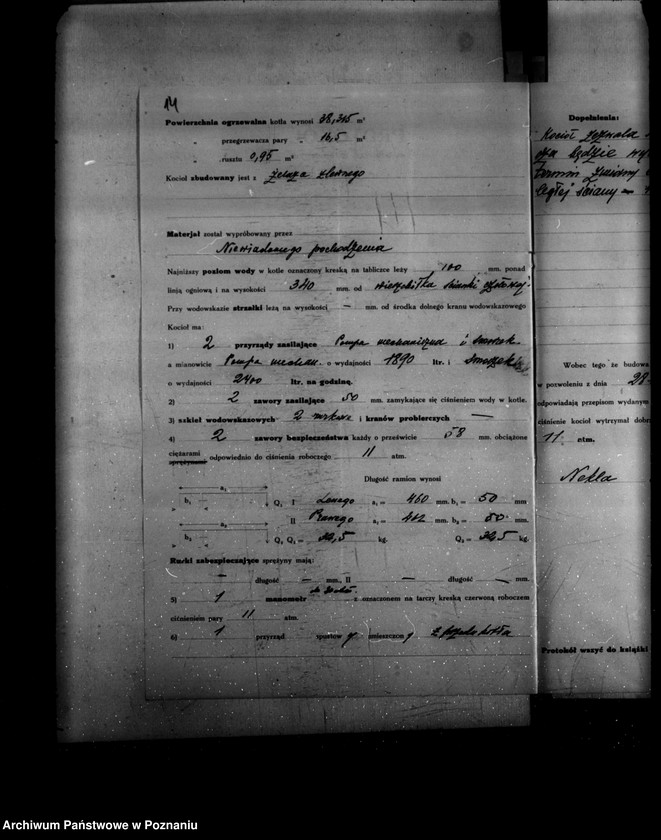 14
Powierzchnia ogrzewalna kotła wynosi 38,315 m²
" przegrzewacza pary " 16,5 m²
" rusztu 0,95 m²
Kocioł zbudowany jest z żelaza zlewnego
Materjał został wypróbowany przez
Niewiadomego pochodzenia
Najniższy poziom wody w kotle oznaczony kreską na tabliczce leży 100 mm. ponad
linją ogniową i na wysokości 340 mm. od wierzchołka ścianki
Przy wodowskazie strzałki leżą na wysokości — mm. od środka dolnego kranu wodowskazowego
Kocioł ma:
1) 2 przyrządy zasilające Pompa mechaniczna i smoczek
a mianowicie Pompa mechan. o wydajności 1890 ltr. i Smoczek
o wydajności 2400 ltr. na godzinę.
2) 2 zawory zasilające 50 mm. zamykające się ciśnieniem wody w kotle.
3) szkieł wodowskazowych 2 i kranów probierczych —
4) 2 zawory bezpieczeństwa każdy o prześwicie 58 mm. obciążone
ciężarami
sprężynami odpowiednio do ciśnienia roboczego 11 atm.
Długość ramion wynosi
a₁
b₁ Q₁ I Lewego a₁ = 460 mm. b₁ = 50 mm
a₂ II Prawego a₁ = 462 mm. b₂ = 50 mm.
b₂ Q₁ Q₁ = 32,5 kg. Q₂ = 32,5 kg.
Rurki zabezpieczające sprężyny mają:
— długość — mm., II — długość — mm.
5) 1 manometr z oznaczonem na tarczy kreską czerwoną roboczem
ciśnieniem pary 11 atm.
6) 1 przyrząd spustowy umieszczony z przodu kotła
Dopełnienia:
Kocioł zezwala
będzie
termin zmiany
ległej ściany
Wobec tego że budowa
w pozwoleniu z dnia 28
odpowiadają przepisom wydanym
ciśnienie kocioł wytrzymał dobrz
11 atm.
Nekla
Protokół wszyć do książki
Archiwum Państwowe w Poznaniu